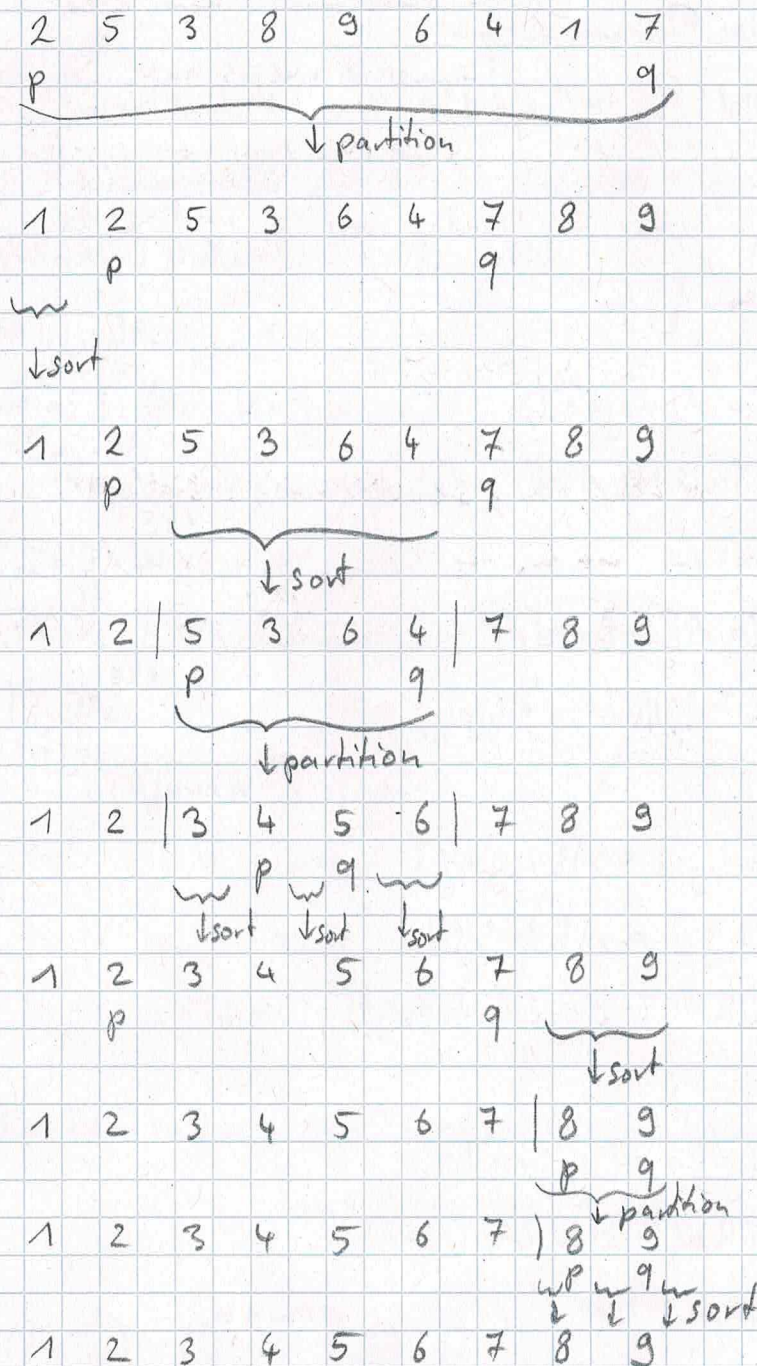 2 5 3 8 9 6 4 1 7
p q
↓ partition
1 2 5 3 6 4 7 8 9
p q
↓ sort
1 2 5 3 6 4 7 8 9
p q
↓ sort
1 2 | 5 3 6 4 | 7 8 9
p q
↓ partition
1 2 | 3 4 5 6 | 7 8 9
p q
↓ sort ↓ sort ↓ sort
1 2 3 4 5 6 7 8 9
p q
↓ sort
1 2 3 4 5 6 7 | 8 9
p q
↓ partition
1 2 3 4 5 6 7 ) 8 9
p q
↓ ↓ ↓ sort
1 2 3 4 5 6 7 8 9